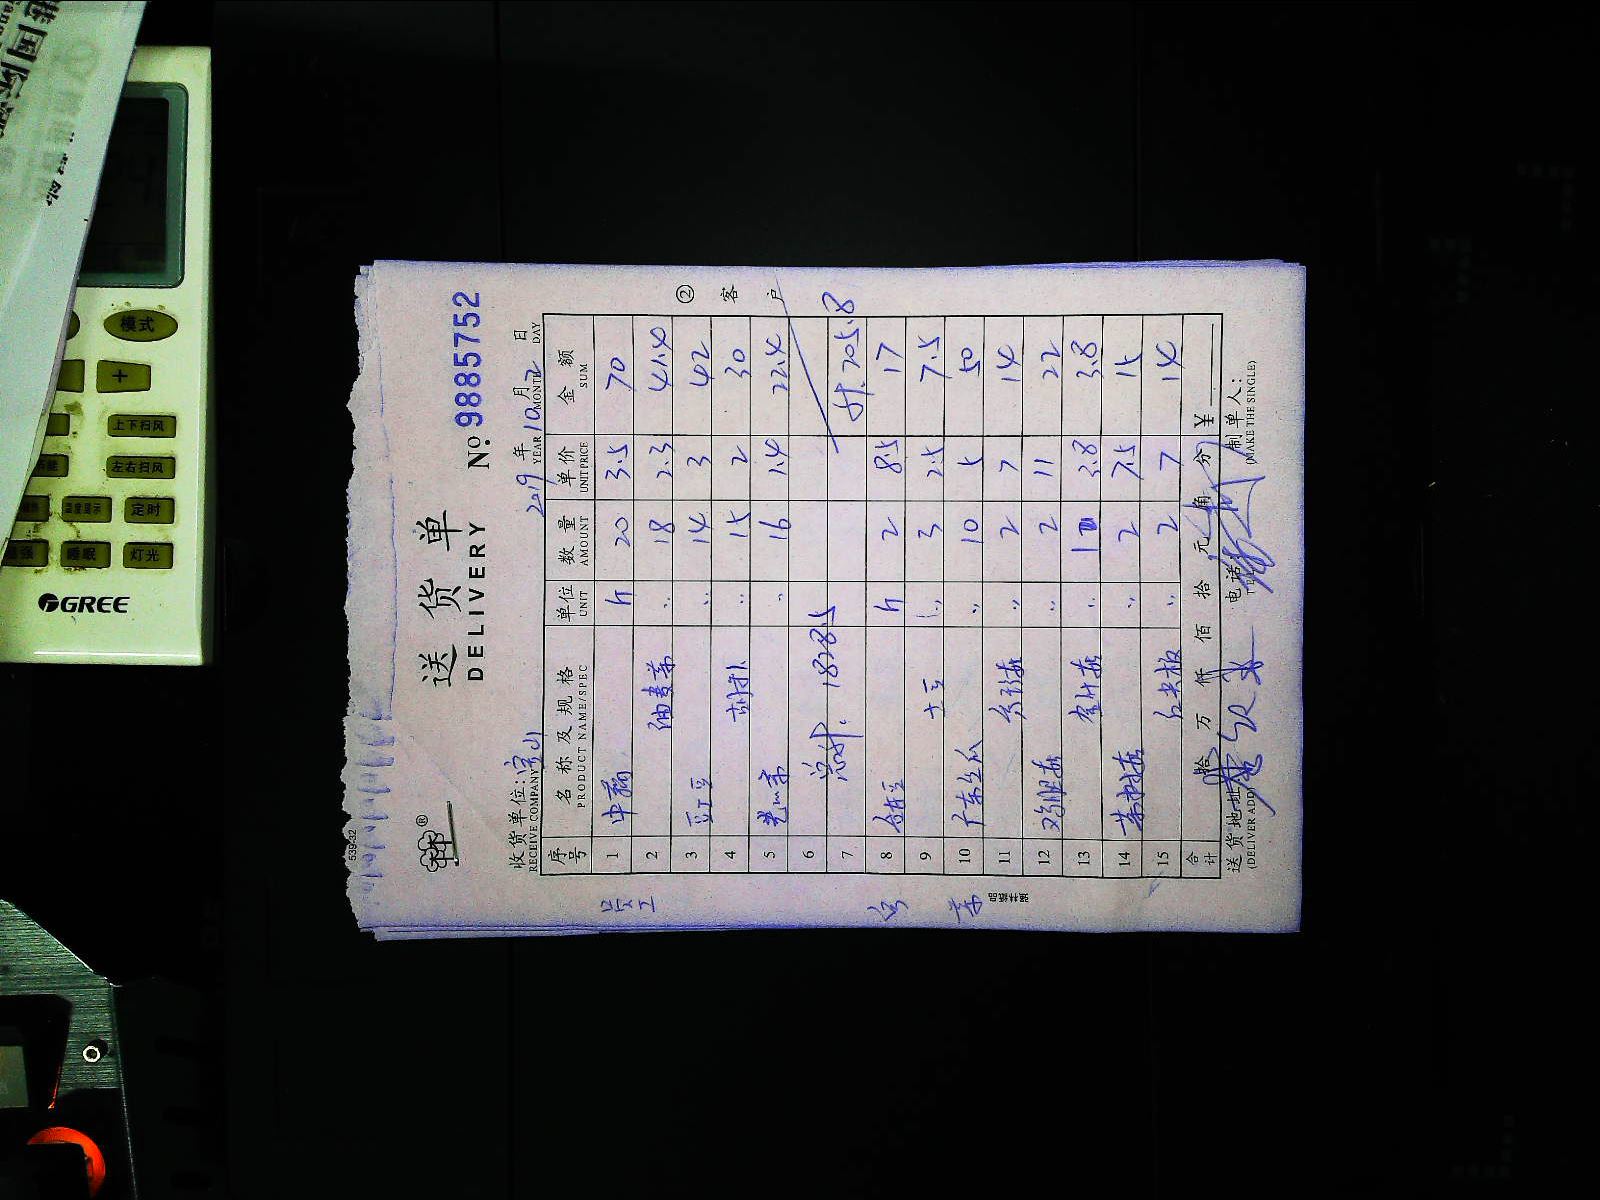 539-32
送 货 单
DELIVERY
No. 9885752
收货单位:
RECEIVE COMPANY
2019 年 10 月 2 日
YEAR MONTH DAY
序号 名 称 及 规 格 单位 数 量 单 价 金 额
PRODUCT NAME/SPEC UNIT AMOUNT UNIT PRICE SUM
1 斤 20 3.5 70
2 油麦菜 〃 18 2.3 41.4
3 豆 〃 14 3 42
4 〃 15 2 30
5 〃 16 1.4 22.4
6
7 总计: 1828.5 计.205.8
8 斤 2 8.5 17
9 〃 3 2.5 7.5
10 广东丝瓜 〃 10 5 50
11 〃 2 7 14
12 鸡腿菇 〃 2 11 22
13 〃 1 3.8 3.8
14 茶树菇 〃 2 7.5 15
15 〃 2 7 14
合计 拾 万 仟 佰 拾 元 角 分 ¥
送货地址
(DELIVER ADD)
电话
制单人:
(MAKE THE SINGLE)
② 客 户
员工
客
菜
模式
+
上下扫风
左右扫风
温度显示
定时
睡眠
灯光
GREE
国际